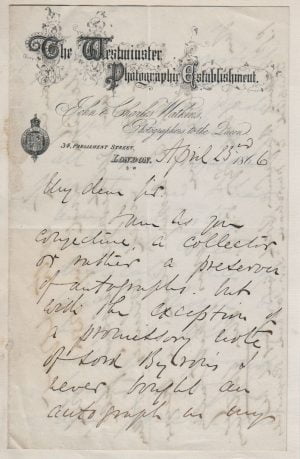 The Westminster
Photographic Establishment.
John & Charles Watkins,
Photographers to the Queen
34, PARLIAMENT STREET,
LONDON.
April 23rd 1866
My dear Sir.
I am as you
conjecture, a collector
or rather a preserver
of autographs. but
with the exception of
a promissory note
of Lord Byron's I
never bought an
autograph in my